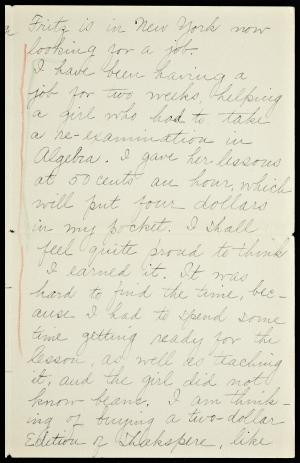 Fritz is in New York now
looking for a job.
I have been having a
job for two weeks, helping
a girl who had to take
a re-examination in
Algebra. I gave her lessons
at 50 cents an hour, which
will put four dollars
in my pocket. I shall
feel quite proud to think
I earned it. It was
hard to find the time, bec-
ause I had to spend some
time getting ready for the
lesson, as well as teaching
it, and the girl did not
know beans. I am think-
ing of buying a two-dollar
Edition of Shakspere, like